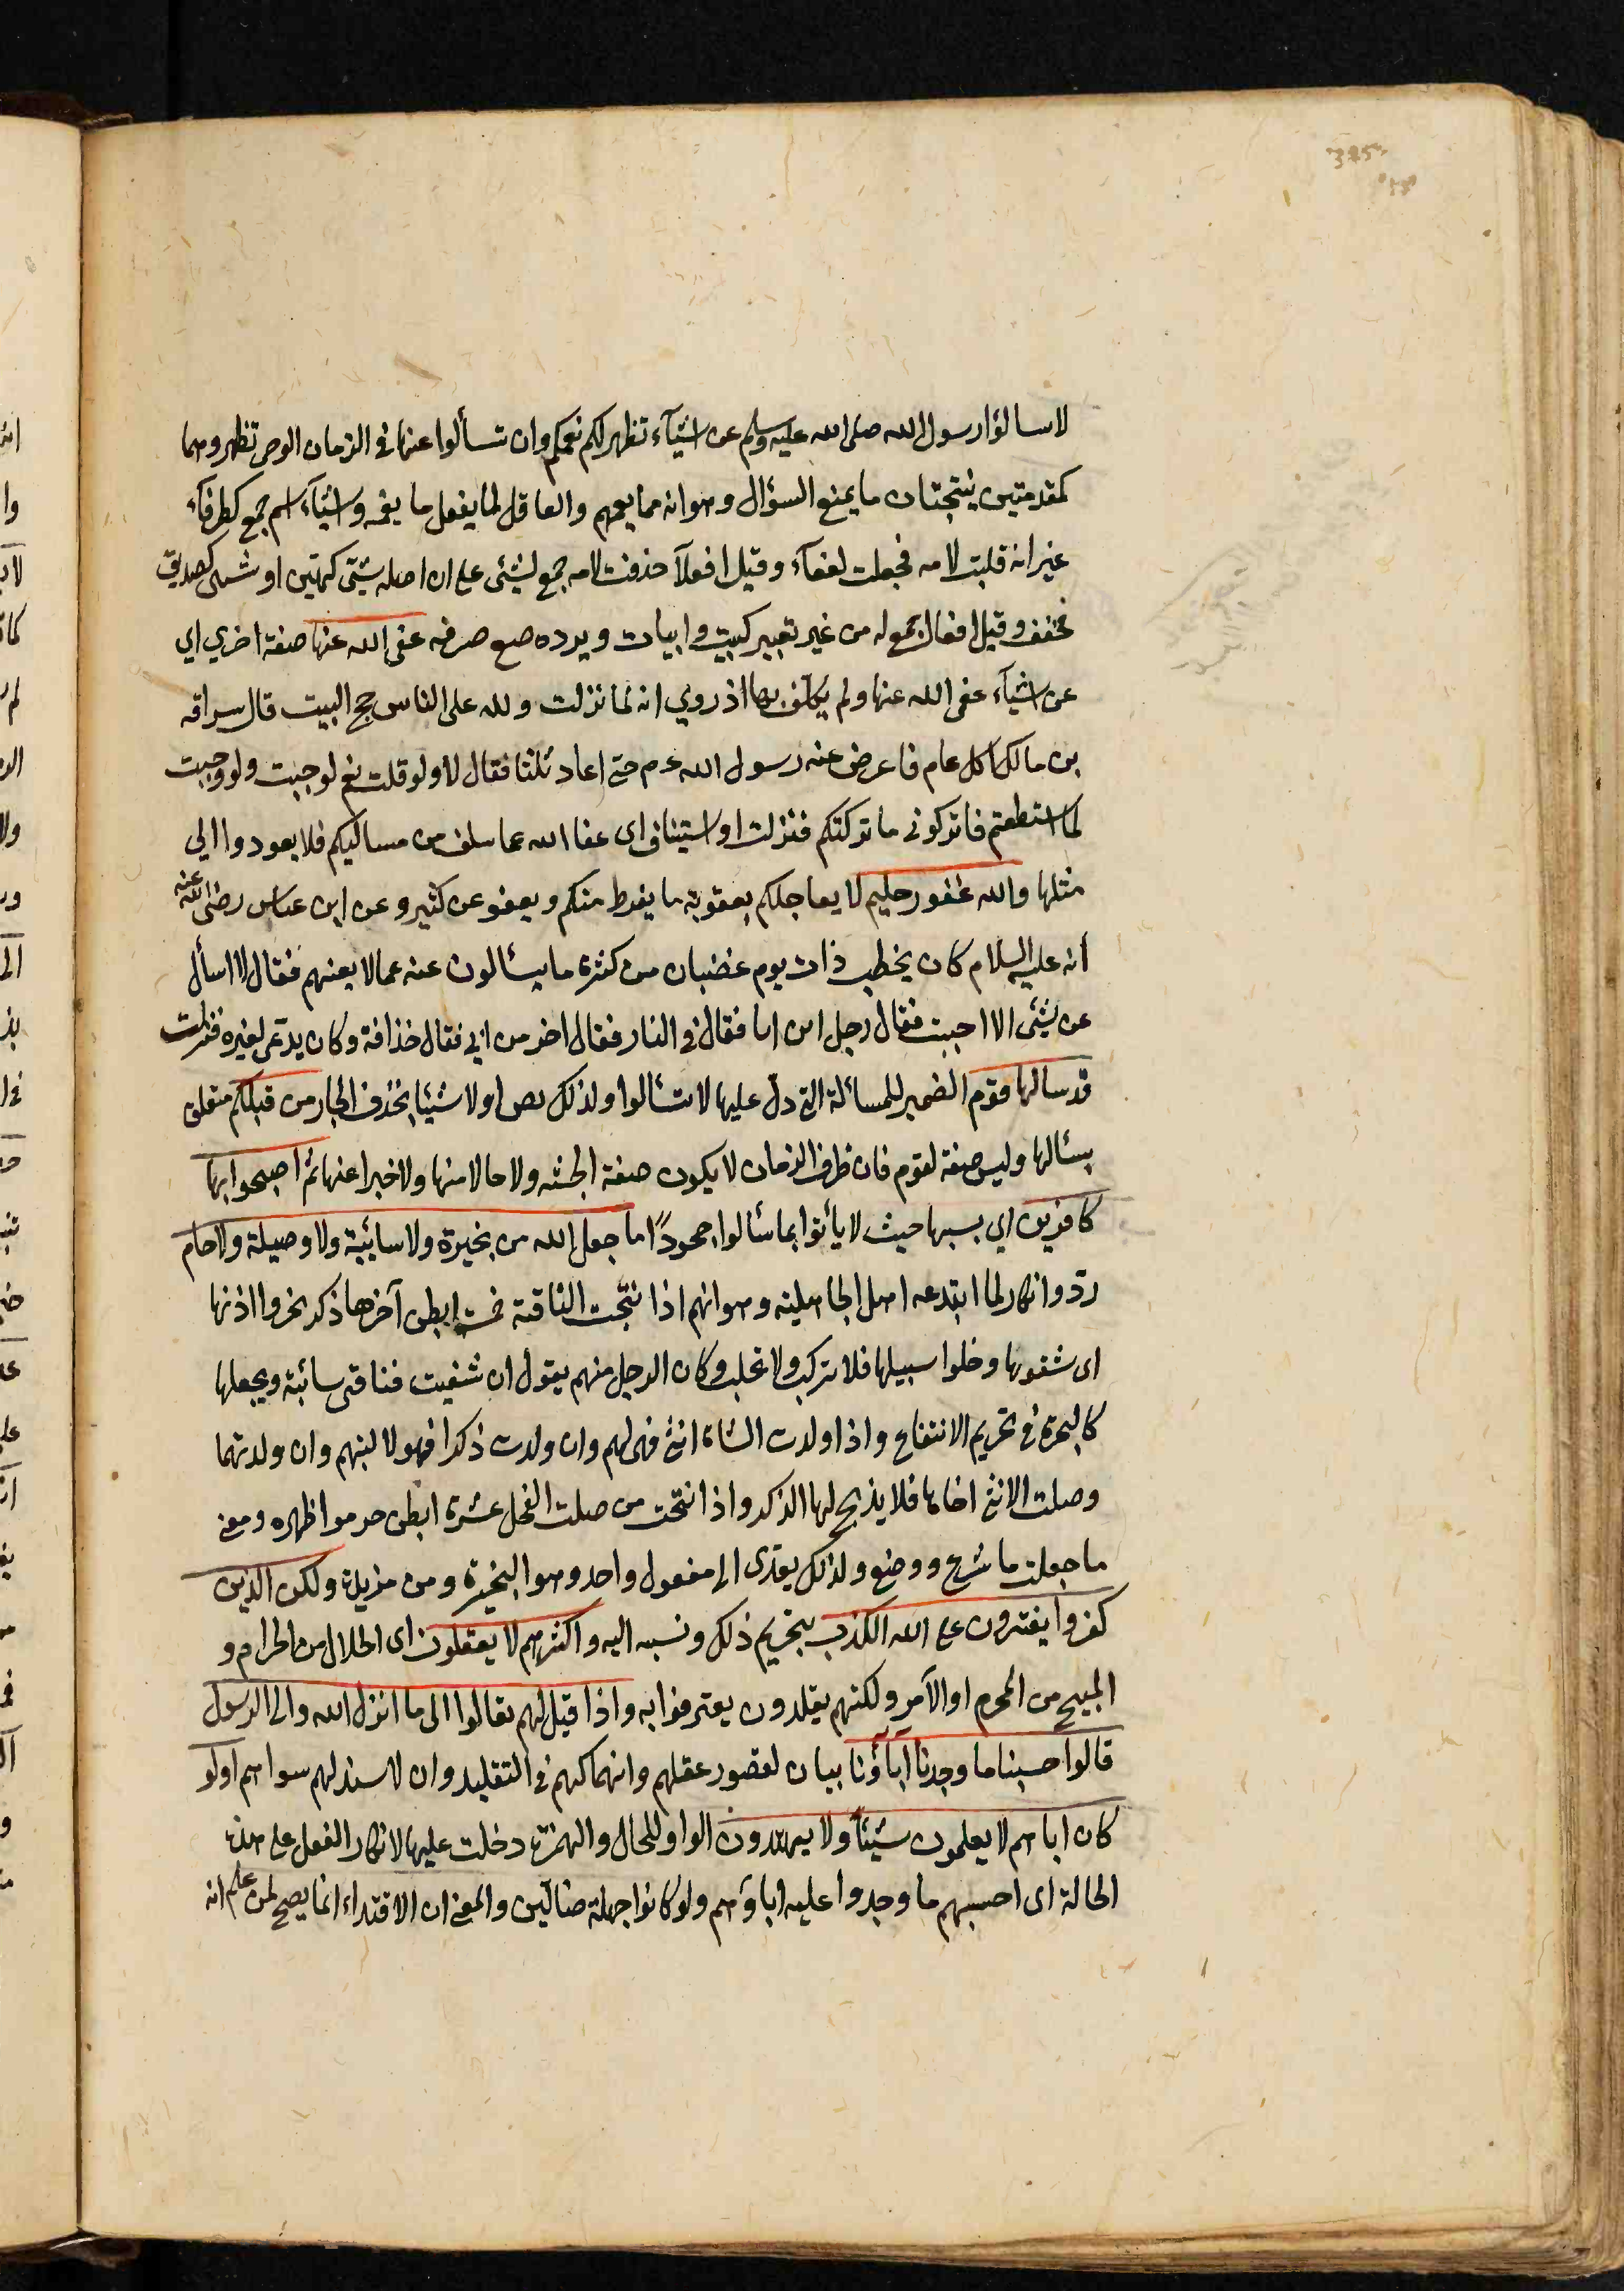 325
لاسالؤا رسول الله صلى الله عليه وسلم عن اشيآء تظهر لكم نعمكم وان تسألوا عنها فى الزمان الوحى تظهر وهما
كمقدمتين ينتجتان ما يمنع السؤال وهو انه مما يعمهم والعاقل لما يفعل ما يغمه واشيآء اسم جمع كطرفآء
غير انه قلبت لامه فجعلت لفعآء وقيل افعلآ حذفت لامه جمع لشئى على ان اصله شيّئ كهيّن او شيئ كصديق
مخفف وقيل افعال جمع له من غير تغيير كبيت وابيات ويرده صع صرفه عفى الله عنها صفة اخري اي
عن اشيآء عفى الله عنها ولم يكلف بها اذ روي انه لما نزلت ولله على الناس حج البيت قال سراقه
بن مالك اكل عام فاعرض عنه رسول الله ءم حتى اعاد ثلثا فقال لا ولو قلت نعم لوجبت ولو وجبت
لما استطعتم فاتركونى ما تركتكم فنزلت او استيناف اى عفا الله عما سلف من مساليكم فلا يعودوا الي
مثلها والله غفور حليم لا يعاجلكم بعقوبة ما يفرط منكم ويعفو عن كثير وعن ابن عباس رضى الله عنه
أنه عليه السلام كان يخطب ذات يوم غضبان من كثرة ما يسئالون عنه عما لا يعنهم فقال لا اسأل
عن شئى الا اجبت فقال رجل اين ابا فقال فى النار فقال اخر من ابى فقال خذافة وكان يدّعى لغيره فنزلت
قد سالها قوم الضمير للمسألة التى دلّ عليها لا تسئالوا ولذلك بص او لا شيئا بخذف الجار من قبلكم متعلق
بسئالها وليس صفة لقوم فان ظرف الزمان لا يكون صفة الجشه ولا حالا منها ولا خبرا عنها ثم اصبحوا بها
كافرين اي بسبها حيث لا يأتوا بما سئالوا جحوداً ما جعل الله من بخيرة ولا سائيبة ولا وصيلة ولا حام
ردّ وانكار لما ابتدعه اهل الجاهلية وهو انهم اذا نتجت الناقة خمسة ابطن آخرها ذكر نحروا اذنها
اى شقوها وخلوا سبيلها فلا تركب ولا تحلب وكان الرجل منهم يقول ان شفيت فناقتى سائبة ويجعلها
كالبحرة فى تحريم الانتفاع واذا ولدت الشاة انثى فهى لهم وان ولدت ذكرا فهو لالبنهم وان ولدتهما
وصلت الانثى اخاها فلا يذبح لها الذكر واذا نتحت من صلت الفحل عشرة ابطن حرموا ظهره ومعنى
ما جعلت ما شرع ووضع ولذلك يعدّى الى مفعول واحد وهو البخيرة ومن مزيدة ولكن الذين
كفروا يفترون على الله الكذب بتحريم ذلك ونسبه اليه واكثرهم لا يعقلون اى الحلال من الحرام و
المبيح من المحرم او الآمر ولكنهم يقلدون يعترفوا به واذا قيل لهم تعالوا الى ما انزل الله والى الرسول
قالوا حسبنا ما وجدنا آباؤنا بيان لقصور عقلهم وانهماكهم فى التقليد وان لا سند لهم سواهم اولو
كان اباهم لا يعلمون شيئًا ولا يهتدون الواو للحال والهمزة دخلت عليها لانكار الفعل على هذه
الحالة اى احسبهم ما وجدوا عليه اباؤهم ولو كانوا جهلة ضالّين والمعنى ان الاقتداء انما يصح لمن علم انه